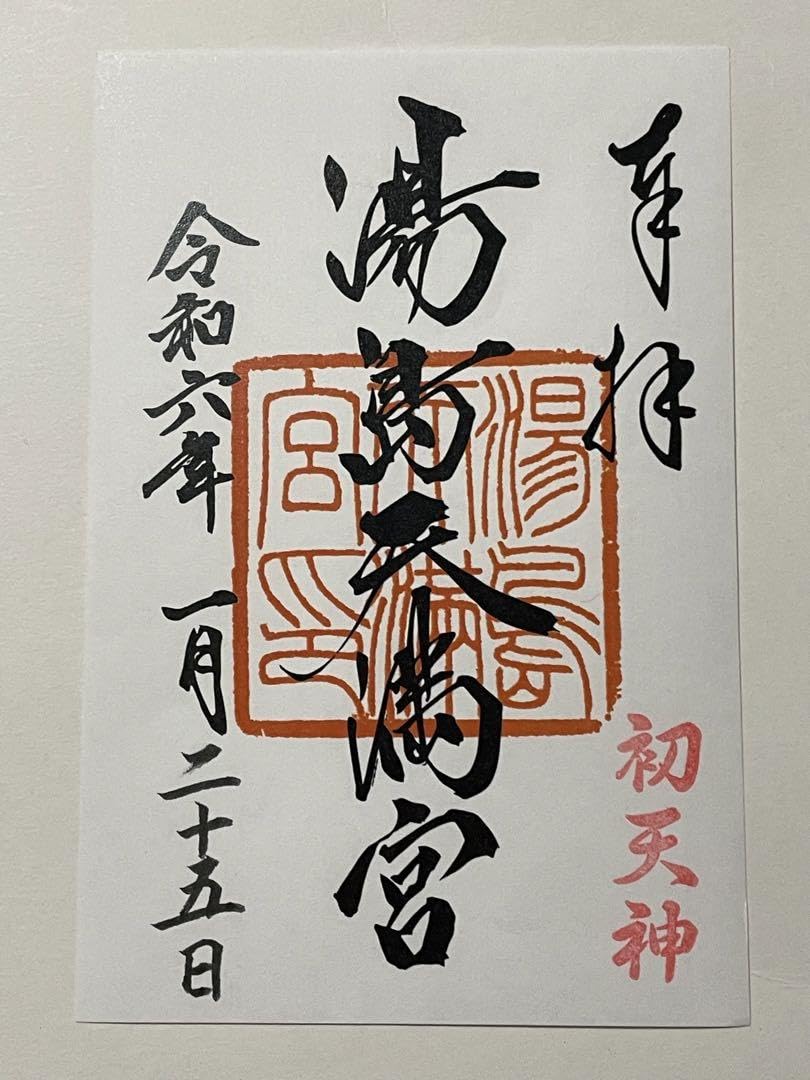 奉拝
初天神
湯島天満宮
湯島天満宮印
令和六年一月二十五日